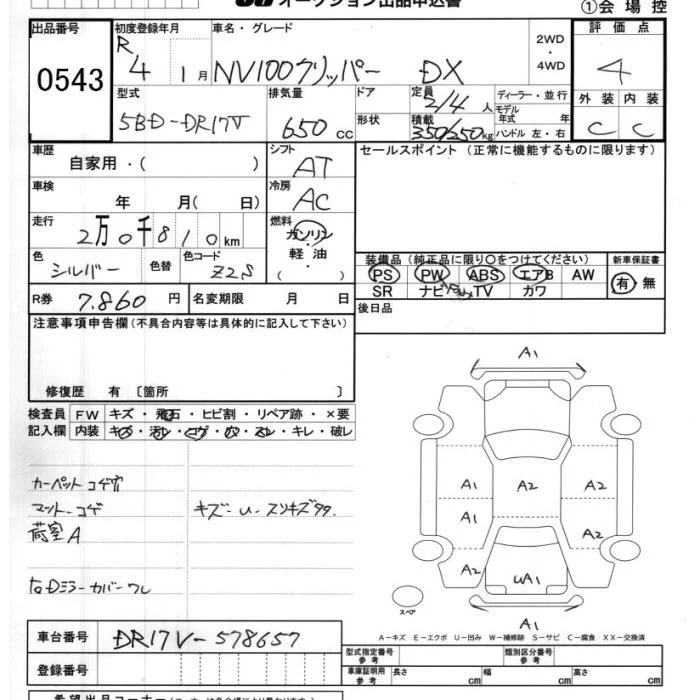 オークション出品申込書
①会場控
出品番号
0543
初度登録年月
R 4 1月
車名・グレード
NV100クリッパー DX
2WD
・
4WD
評価点
4
外装 内装
C C
型式
5BD-DR17V
排気量
650cc
ドア
形状
定員
2/4人
積載
350/250kg
ディーラー・並行
モデル
年式 年
ハンドル 左・右
車歴
自家用・( )
シフト
AT
車検
年 月( 日)
冷房
AC
走行
2万0千810km
燃料
ガソリン
軽油
・( )
色
シルバー
色替
色コード
Z2S
R券 7.860円
名変期限 月 日
セールスポイント(正常に機能するものに限ります)
装備品(純正品に限り○をつけてください)
PS PW ABS エアB AW
SR ナビ TV カワ
新車保証書
有・無
後日品
注意事項申告欄(不具合内容等は具体的に記入して下さい)
修復歴 有〔箇所 〕
検査員
記入欄
FW キズ・飛石・ヒビ割・リペア跡・×要
内装 キズ・汚レ・コゲ・穴・スレ・キレ・破レ
カーペットコゲ穴
マットコゲ
荷室A
キズ-U-スリキズ
ミラーカバーワレ
A1
A1 A2 A2
A1
A2 A2
UA1
A1
スペア
A-キズ E-エクボ U-凹み W-補修跡 S-サビ C-腐食 XX-交換済
車台番号
DR17V-578657
登録番号
型式指定番号
参考
類別区分番号
参考
車庫証明用
参考
長さ cm 幅 cm 高さ cm
希望出品コーナー